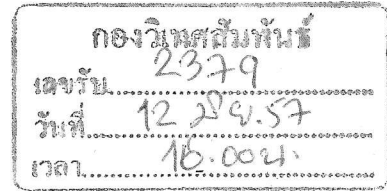 กองวิเทศสัมพันธ์
เลขรับ 2379
วันที่ 12 มิ.ย. 57
เวลา 16.00 น.